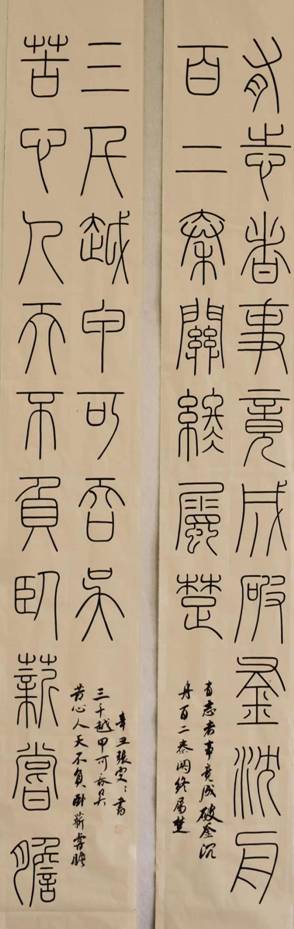 有志者事竟成破釜沈舟
百二秦關終屬楚
有志者事竟成破釜沉
舟百二秦關終屬楚
苦心人天不負臥薪嘗膽
三千越甲可吞吳
苦心人天不負卧薪嘗膽
三千越甲可吞吳
辛丑張書